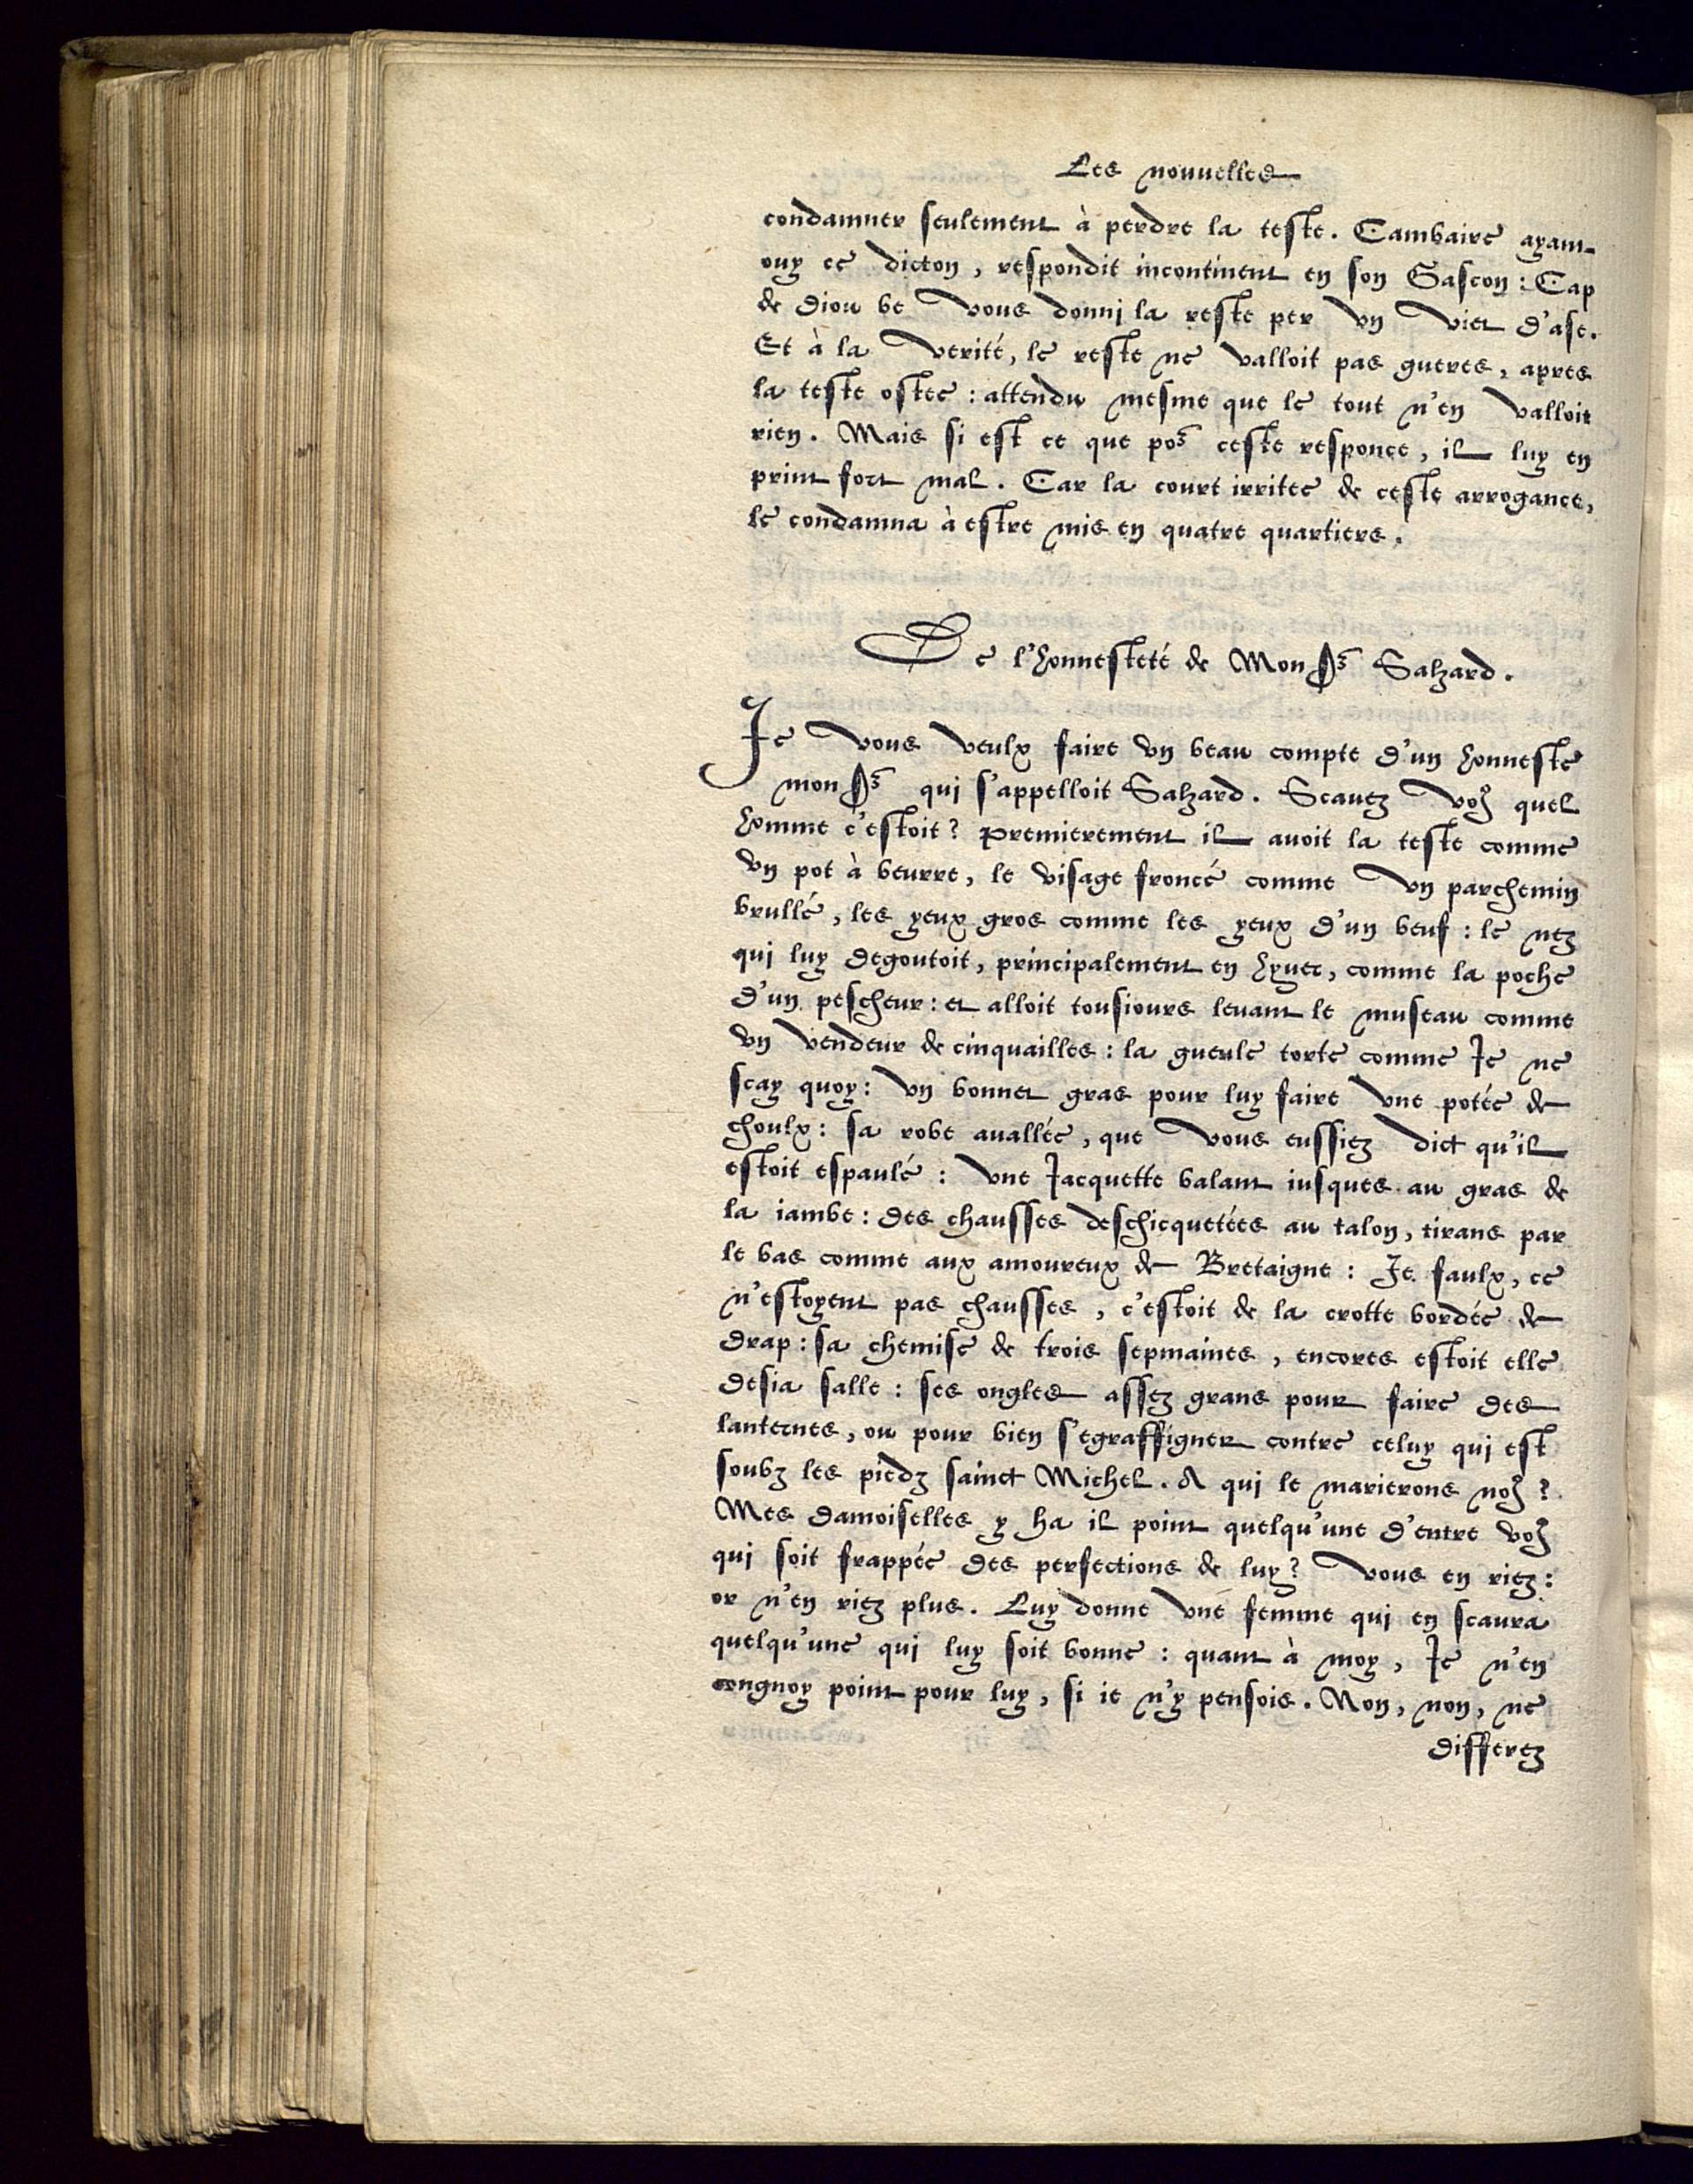 Les nouuelles
condamner seulement à perdre la teste. Cambaire ayant
ouy ce dicton, respondit incontinent en son Gascon: Cap
de Diou be vous donni la reste per vn viet d'ase.
Et à la verité, le reste ne valloit pas gueres, apres
la teste ostee: attendu mesme que le tout n'en valloit
rien. Mais si est ce que po⁹ ceste responce, il luy en
print fort mal. Car la court irritee de ceste arrogance,
le condamna à estre mis en quatre quartiers.
De l'honnesteté de Monsʳ Salzard.
Je vous veulx faire vn beau compte d'un honneste
monsʳ qui s'appelloit Salzard. Scauez vo⁹ quel
homme c'estoit? Premierement il auoit la teste comme
vn pot à beurre, le visage froncé comme vn parchemin
brullé, les yeux gros comme les yeux d'un beuf: le nez
qui luy degoutoit, principalement en hyuer, comme la poche
d'un pescheur: et alloit tousiours leuant le museau comme
vn vendeur de cinquailles: la gueule torte comme Je ne
scay quoy: vn bonnet gras pour luy faire vne potée de
choulx: sa robe auallée, que vous eussiez dict qu'il
estoit espaulé: vne Jacquette balant iusques au gras de
la iambe: des chausses deschicquetées au talon, tirans par
le bas comme aux amoureux de Bretaigne: Je faulx, ce
n'estoyent pas chausses, c'estoit de la crotte bordée de
drap: sa chemise de trois sepmaines, encores estoit elle
desia salle: ses ongles assez grans pour faire des
lanternes, ou pour bien s'egraffigner contre celuy qui est
soubz les piedz sainct Michel. A qui le marierons no⁹?
Mes damoiselles y ha il point quelqu'une d'entre vo⁹
qui soit frappée des perfections de luy? vous en riez:
or n'en riez plus. Luy donne vne femme qui en scaura
quelqu'une qui luy soit bonne: quant à moy, Je n'en
congnoy point pour luy, si ie n'y pensois. Non, non, ne
differez